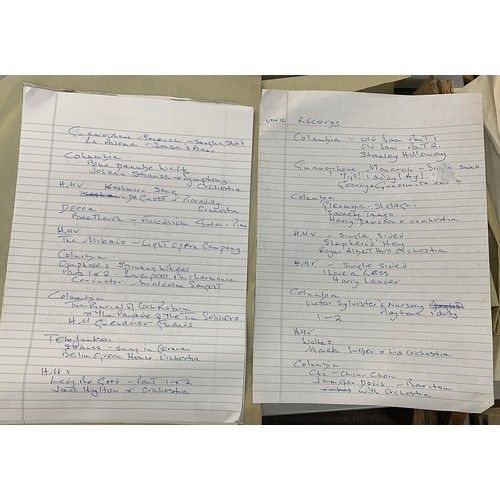 Gramophone Monarch - Single Sided
La Paloma - Sousa's Band
Columbia
Blue Danube Waltz
Johann Strauss & Symphony
Orchestra
H.M.V
De Groot & Piccadilly
Orchestra
Decca
Beethoven -
H.M.V
The Mikado - Light Opera Company
Columbia
Omphale's Spinning Wheel
Parts 1 & 2 - Liverpool Philharmonic
Conductor - Malcolm Sargent
Columbia
The Funeral of Cock Robin
& The Parade of the Tin Soldiers
H.M Grenadier Guards
Telefunken
Strauss - sung in German
Berlin Opera House Orchestra
H.M.V
Lady Be Good - Part 1 & 2
Jack Hylton & Orchestra
Records
Columbia - Old Sam Part 1
Old Sam Part 2
Stanley Holloway
Gramophone Monarch - Single Sided
George Grossmith
Columbia
Glenmona - Shelagh
Society Tango
Harry Davidson & Orchestra
H.M.V - Single Sided
Shepherd's Hey
Royal Albert Hall Orchestra
H.M.V - Single Sided
I Love a Lass
Harry Lauder
Columbia
Victor Sylvester's Nursery
Playtime Party
1-2
H.M.V
Waltzes
Marek Weber & his Orchestra
Columbia
Chu - Chin - Chow
- Baritone
with Orchestra